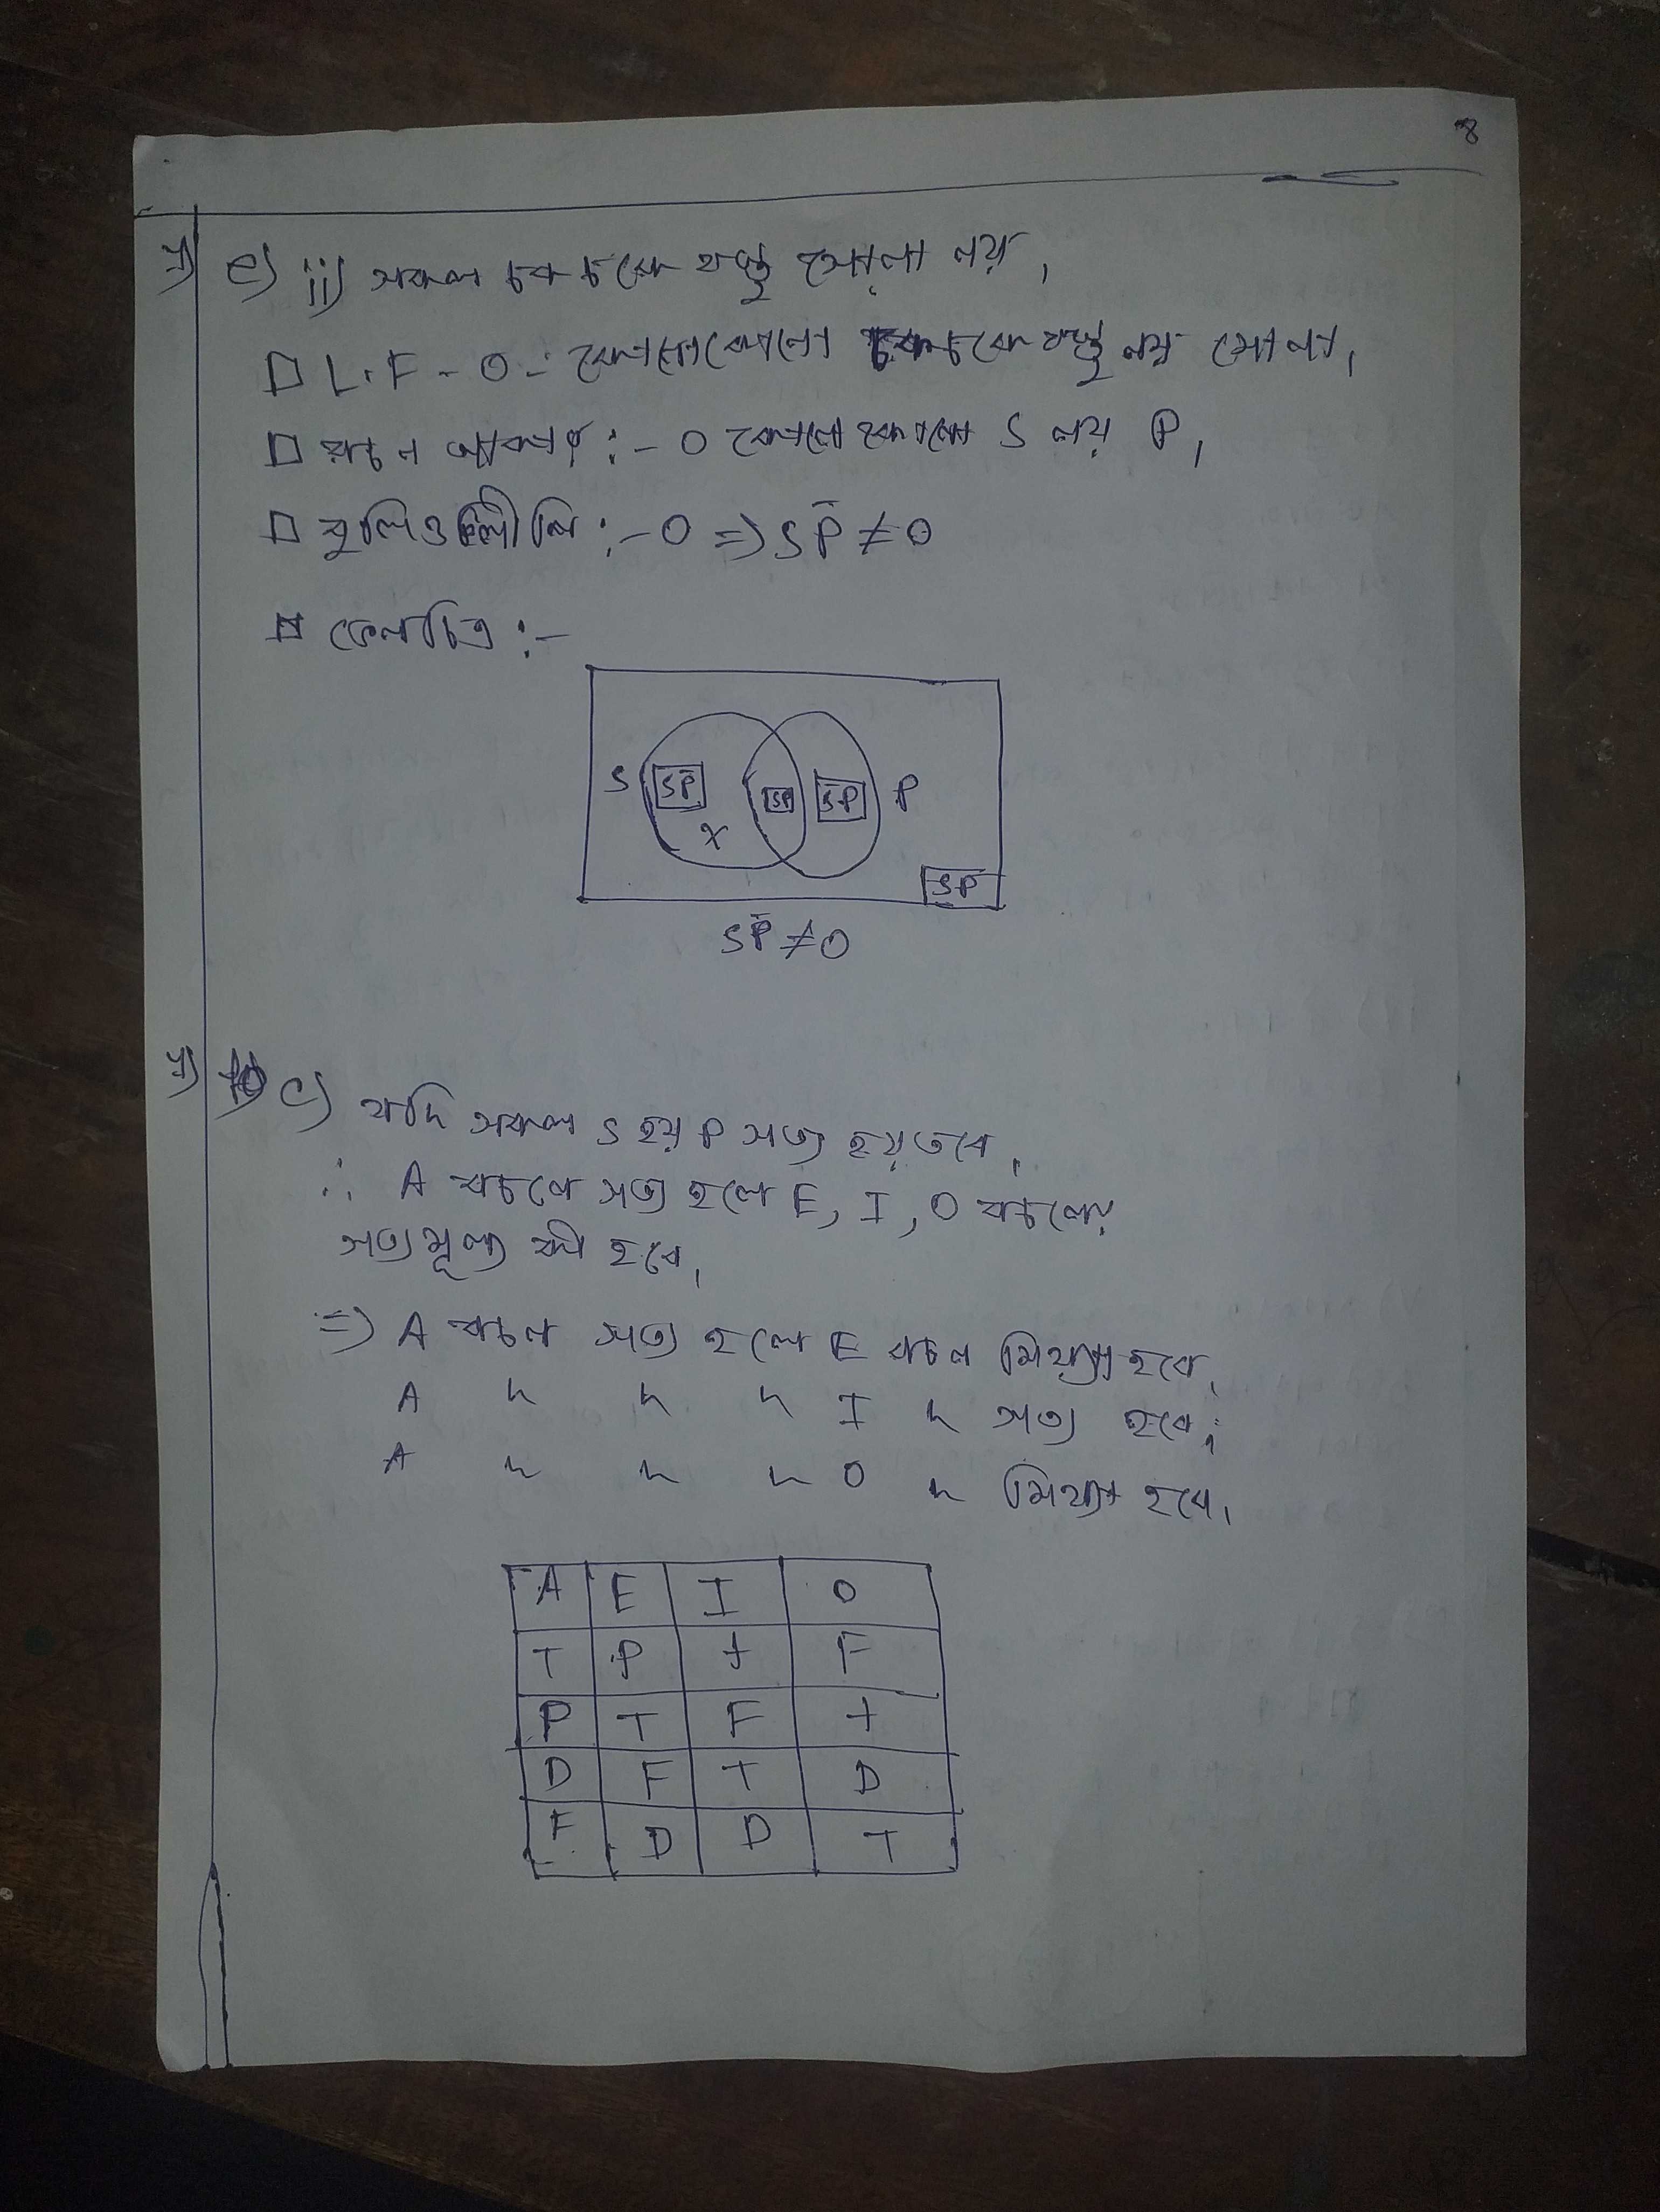 8
1) e) ii) সকল চকচকে বস্তু সোনা নয়,
L.F - O - কোনোকোনো চকচকে বস্তু নয় সোনা,
বচন আকার :- O কোনো কোনো S নয় P,
:- O ⇒ SP̄ ≠ O
ভেনচিত্র :-
S SP̄ SP S̄P P
X
S̄P̄
SP̄ ≠ O
1) c) যদি সকল S হয় P সত্য হয় তবে,
∴ A বচনে সত্য হলে E, I, O বচনের
সত্যমূল্য কী হবে,
⇒ A বচন সত্য হলে E বচন মিথ্যা হবে,
A " " " I " সত্য হবে,
A " " " O " মিথ্যা হবে,
A E I O
T P T F
P T F T
D F T D
F D D T